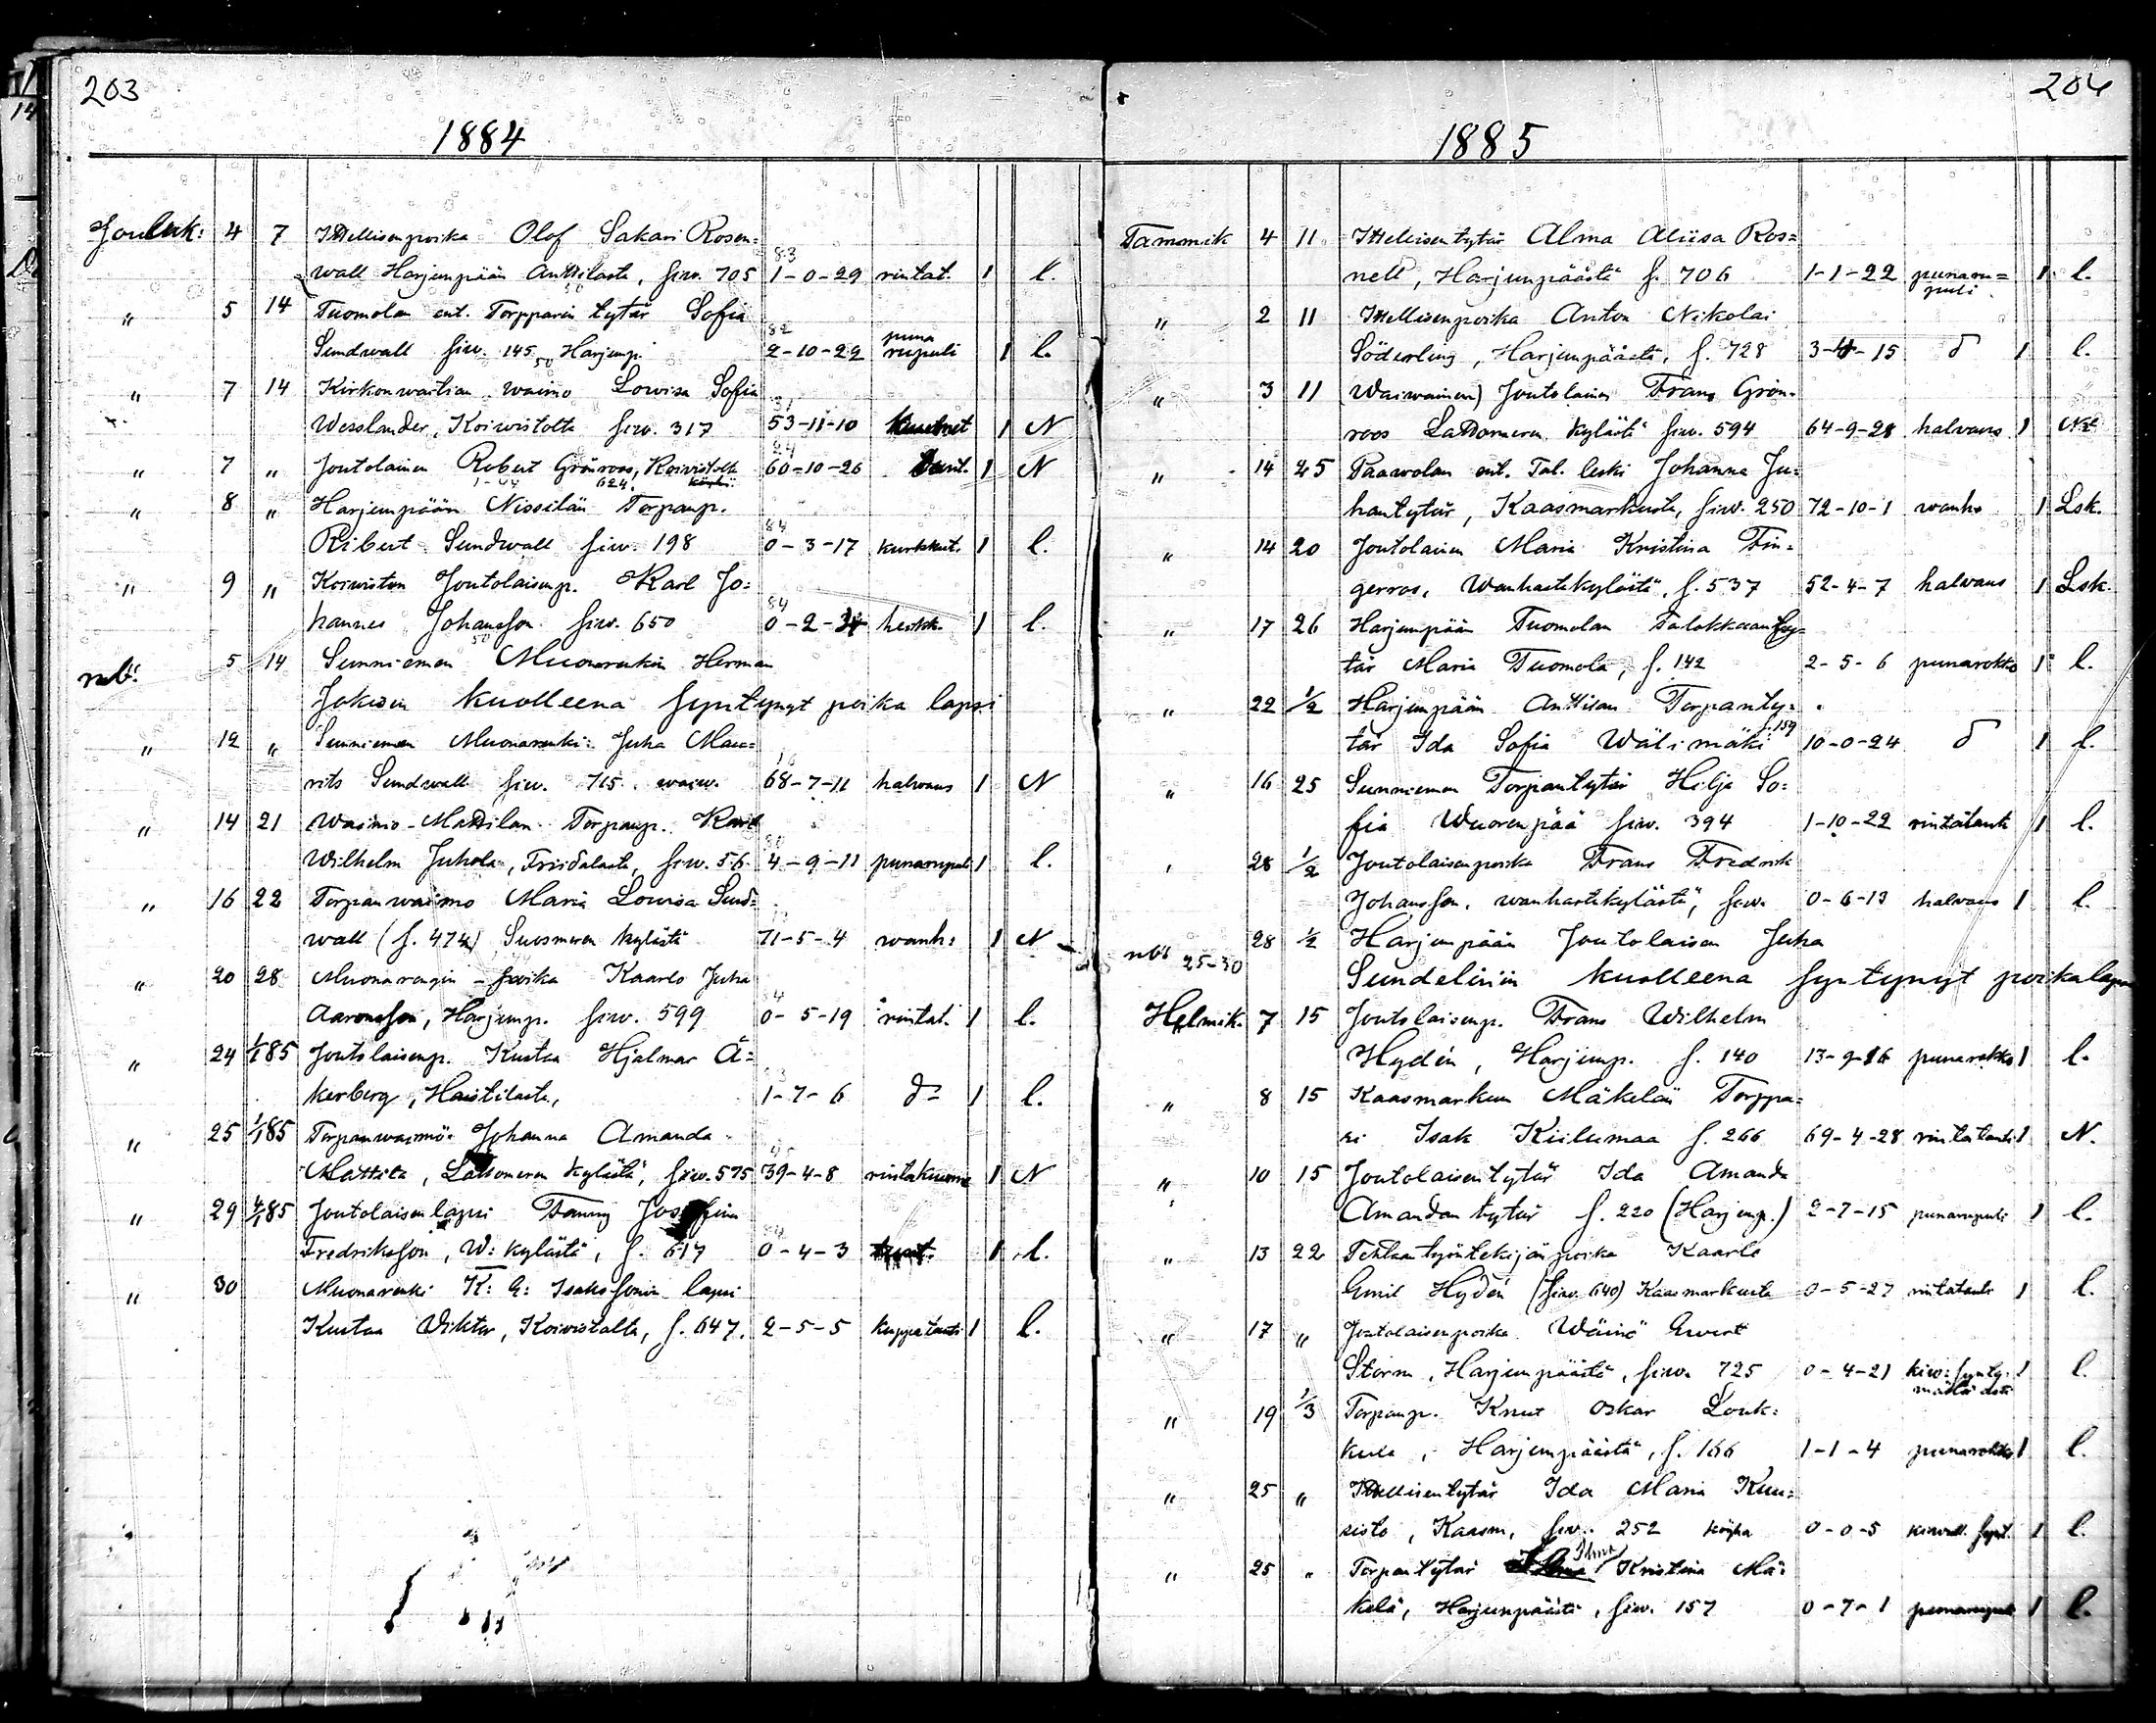 203
1884
Jouluk: 4 7 Itsellisenpoika Olof Sakari Rosen=
83
wall Harjunpään Anttilasta, siw. 705 1-0-29 rintat. 1 l.
" 5 14 Tuomolan ent. Torpparin tytär Sofia
82
Sundwall siw. 145 Harjunp. 2-10-22 puna rupuli 1 l.
" 7 14 Kirkonwartian waimo Lowisa Sofia
31
Wesslander, Koiwistolta siw. 317 53-11-10 1 N
24
" 7 " Joutolainen Robert Grönroos, Koiwistolta 60-10-26 1 N
624.
" 8 " Harjunpään Nissilän Torpanp.
84
Robert Sundwall siw. 198 0-3-17 kurkkut. 1 l.
" 9 " Koiwiston Joutolaisenp. Karl Jo=
84
hannes Johansson siw. 650 0-2- heikk. 1 l.
nb: 5 14 Sunniemen Muonarenkin Herman
Jokisen kuolleena syntynyt poika lapsi
" 12 " Sunniemen Muonarenki: Juha Mau=
16
rits Sundwall siw. 715 waiw. 68-7-11 halwaus 1 N
" 14 21 Wainio-Mattilan Torpanp. Karl
80
Wilhelm Juhola, Friidalasta, siw. 56. 4-9-11 punarupuli 1 l.
" 16 22 Torpanwaimo Maria Lowisa Sund=
13
wall (s. 474) Suosmeren kylästä 71-5-4 wanh: 1 N
" 20 28 Muonarengin-poika Kaarlo Juha
84
Aaronsson, Harjunp. siw. 599 0-5-19 rintat. 1 l.
" 24 1/1 85 Joutolaisenp. Kustaa Hjalmar Å=
83
kerberg, Haistilasta, 1-7-6 d= 1 l.
" 25 1/1 85 Torpanwaimo: Johanna Amanda
45
Mattila, Lattomeren kylästä, siw. 575 39-4-8 rintakuume 1 N
" 29 4/1 85 Joutolaisenlapsi Fanny Josefiina
84
Fredriksson, W: kylästä, s. 617 0-4-3 1 l.
" 30 Muonarenki K: G: Isakssonin lapsi
Kustaa Viktor, Koiwistolta, s. 647. 2-5-5 kuppatauti 1 l.
204
1885
Tammik 4 11 Itsellisentytär Alma Aliisa Ros=
nell, Harjunpäästä s. 706 1-1-22 punaru= puli 1 l.
" 2 11 Itsellisenpoika Anton Nikolai
Söderling, Harjunpäästä, s. 728 3-4-15 d 1 l.
" 3 11 Waiwainen) Joutolainen Frans Grön=
roos Lattomeren kylästä siw. 594 64-9-28 halwaus 1 N
" 14 25 Paawolan ent. Tal. leski Johanna Ju=
hantytär, Kaasmarkusta, siw. 250 72-10-1 wanh. 1 Lsk.
" 14 20 Joutolainen Maria Kristina Fin=
gerroos, Wanhastakylästä, s. 537 52-4-7 halwaus 1 Lsk.
" 17 26 Harjunpään Tuomolan Talokkaan ty=
tär Maria Tuomola, s. 142 2-5-6 punarokko 1 l.
" 22 1/2 Harjunpään Anttilan Torpanty=
tär Ida Sofia Wälimäki s. 159 10-0-24 d 1 l.
" 16 25 Sunniemen Torpantytär Hilja So=
fia Wuorenpää siw. 394 1-10-22 rintatauti 1 l.
" 28 1/2 Joutolaisenpoika Frans Fredrik
Johansson, wanhastakylästä, siw. 0-6-13 halwaus 1 l.
nb: 25-30 28 1/2 Harjunpään Joutolaisen Juha
Sundelinin kuolleena syntynyt poikalapsi
Helmik. 7 15 Joutolaisenp. Frans Wilhelm
Hydén, Harjunp. s. 140 13-9-16 punarokko 1 l.
" 8 15 Kaasmarkun Mäkelän Torppa=
ri Isak Kiilumaa s. 266 69-4-28 rintatauti 1 N.
" 10 15 Joutolaisentytär Ida Amanda
Amandantytär s. 220 (Harjunp.) 2-7-15 punarupuli 1 l.
" 13 22 Tehtaantyöntekijänpoika Kaarlo
Emil Hydén (siw. 640) Kaasmarkusta 0-5-27 rintatauti 1 l.
" 17 " Joutolaisenpoika Wäinö Ewert
Storm, Harjunpäästä, siw. 725 0-4-21 1 l.
" 19 1/3 Torpanp. Knut Oskar Louk=
kula, Harjunpäästä, s. 166 1-1-4 punarokko 1 l.
" 25 " Itsellisentytär Ida Maria Kuu=
sisto, Kaasm, siw. 252 köyhä 0-0-5 1 l.
" 25 " Torpantytär Ilma Kristina Mä=
kelä, Harjunpäästä, siw. 157 0-7-1 punarupuli 1 l.